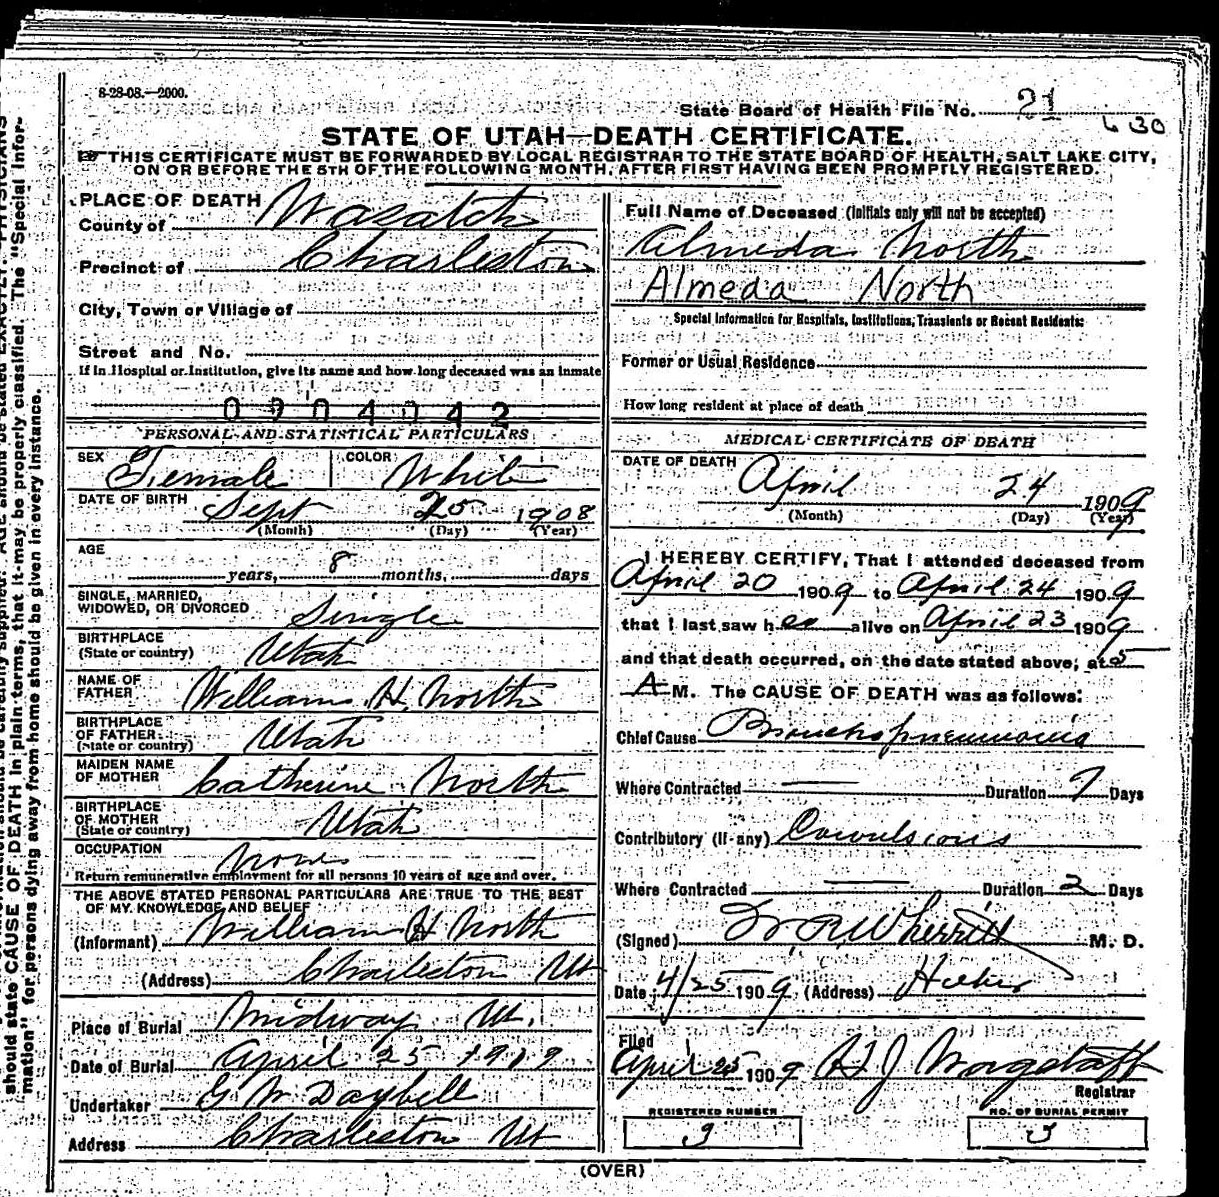 8-28-08.—2000.
State Board of Health File No. 21
630
STATE OF UTAH—DEATH CERTIFICATE.
THIS CERTIFICATE MUST BE FORWARDED BY LOCAL REGISTRAR TO THE STATE BOARD OF HEALTH, SALT LAKE CITY,
ON OR BEFORE THE 5TH OF THE FOLLOWING MONTH, AFTER FIRST HAVING BEEN PROMPTLY REGISTERED.
PLACE OF DEATH
County of Wasatch
Precinct of Charleston
City, Town or Village of
Street and No.
If in Hospital or Institution, give its name and how long deceased was an inmate
0904042
PERSONAL AND STATISTICAL PARTICULARS
SEX Female COLOR White
DATE OF BIRTH Sept 25 1908
(Month) (Day) (Year)
AGE
years, 8 months, days
SINGLE, MARRIED,
WIDOWED, OR DIVORCED Single
BIRTHPLACE
(State or country) Utah
NAME OF
FATHER William H. North
BIRTHPLACE
OF FATHER
(State or country) Utah
MAIDEN NAME
OF MOTHER Catherine North
BIRTHPLACE
OF MOTHER
(State or country) Utah
OCCUPATION None
Return remunerative employment for all persons 10 years of age and over.
THE ABOVE STATED PERSONAL PARTICULARS ARE TRUE TO THE BEST
OF MY KNOWLEDGE AND BELIEF
(Informant) William H North
(Address) Charleston Ut
Place of Burial Midway Ut.
Date of Burial April 25 1909
Undertaker G W Daybell
Address Charleston Ut
Full Name of Deceased (Initials only will not be accepted)
Almeda North
Almeda North
Special Information for Hospitals, Institutions, Transients or Recent Residents:
Former or Usual Residence
How long resident at place of death
MEDICAL CERTIFICATE OF DEATH
DATE OF DEATH
April 24 1909
(Month) (Day) (Year)
I HEREBY CERTIFY, That I attended deceased from
April 20 1909 to April 24 1909
that I last saw her alive on April 23 1909
and that death occurred, on the date stated above, at 5
A M. The CAUSE OF DEATH was as follows:
Chief Cause Bronchopneumonia
Where Contracted — Duration 7 Days
Contributory (if any) Convulsions
Where Contracted — Duration 2 Days
(Signed) Wherritt M. D.
Date 4/25 1909 (Address) Heber
Filed
April 25 1909 H J Wagstaff
Registrar
REGISTERED NUMBER
NO. OF BURIAL PERMIT
3
(OVER)
should state CAUSE OF DEATH in plain terms, that it may be properly classified. The "Special Infor-
mation" for persons dying away from home should be given in every instance.